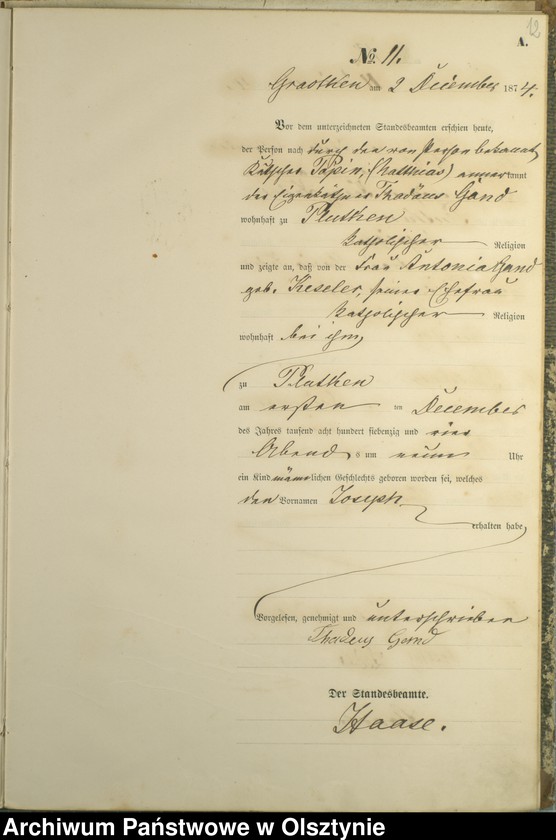 12
A.
No. 11.
Graothen am 2 December 1874.
Vor dem unterzeichneten Standesbeamten erschien heute,
der Person nach durch den von Person bekannt
Kutscher (Matthias) anerkannt
der Thadäus Gand
wohnhaft zu Pluthen
katholischer Religion
und zeigte an, daß von der Frau Antonia Gand
geb. Keseler, seiner Ehefrau
katholischer Religion
wohnhaft bei ihm
zu Pluthen
am ersten im December
des Jahres tausend acht hundert siebenzig und vier
Abend s um neun Uhr
ein Kind männlichen Geschlechts geboren worden sei, welches
den Vornamen Joseph
erhalten habe
Vorgelesen, genehmigt und unterschrieben
Der Standesbeamte.
Haase.
Archiwum Państwowe w Olsztynie